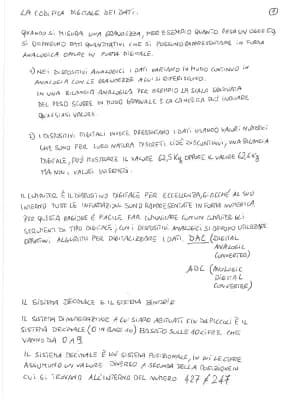 LA CODIFICA DIGITALE DEI DATI: 1
QUANDO SI MISURA UNA GRANDEZZA, PER ESEMPIO QUANTO PESA UN OGGETTO
SI OTTENGONO DATI QUANTITATIVI CHE SI POSSONO RAPPRESENTARE IN FORMA
ANALOGICA OPPURE IN FORMA DIGITALE.
1) NEI DISPOSITIVI ANALOGICI I DATI VARIANO IN MODO CONTINUO IN
ANALOGIA CON LE GRANDEZZE A CUI SI RIFERISCONO.
IN UNA BILANCIA ANALOGICA PER ESEMPIO LA SCALA GRADUATA
DEL PESO SCORRE IN MODO GRADUALE E LA LANCETTA PUÒ INDICARE
QUALSIASI VALORE.
2) I DISPOSITIVI DIGITALI INVECE PRESENTANO I DATI USANDO VALORI NUMERICI
CHE SONO PER LORO NATURA DISCRETI CIOÈ DISCONTINUI, UNA BILANCIA
DIGITALE, PUÒ MOSTRARE IL VALORE 62,5 Kg OPPURE IL VALORE 62,6 Kg
MA NON I VALORI INTERMEDI.
IL COMPUTER È IL DISPOSITIVO DIGITALE PER ECCELLENZA, GIACCHÉ AL SUO
INTERNO TUTTE LE INFORMAZIONI SONO RAPPRESENTATE IN FORMA NUMERICA
PER QUESTA RAGIONE È FACILE FAR COMUNICARE COMPUTER
STRUMENTI DI TIPO DIGITALE, CON I DISPOSITIVI ANALOGICI SI DEVONO UTILIZZARE
ALGORITMI PER DIGITALIZZARE I DATI. DAC (DIGITAL
ANALOGIC
CONVERTER)
ADC (ANALOGIC
DIGITAL
CONVERTER)
IL SISTEMA DECIMALE E IL SISTEMA BINARIO
IL SISTEMA DI NUMERAZIONE A CUI SIAMO ABITUATI FIN DA PICCOLI È IL
SISTEMA DECIMALE (O IN BASE 10) BASATO SULLE 10 CIFRE CHE
VANNO DA 0 A 9.
IL SISTEMA DECIMALE È UN SISTEMA POSIZIONALE, IN CUI LE CIFRE
ASSUMONO UN VALORE DIVERSO A SECONDA DELLA POSIZIONE IN
CUI SI TROVANO ALL'INTERNO DEL NUMERO 427 ≠ 247